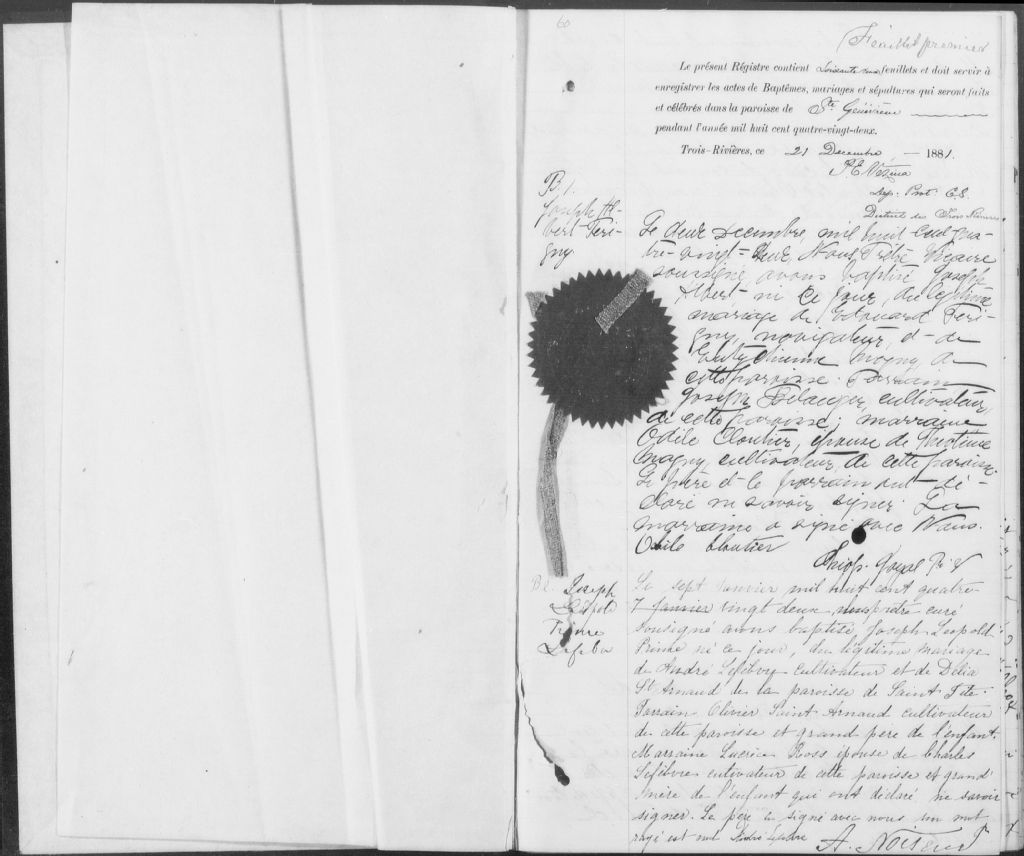 60
Feuillet premier
Le présent Régistre contient soixante feuillets et doit servir à
enregistrer les actes de Baptêmes, mariages et sépultures qui seront faits
et célébrés dans la paroisse de Ste Geneviève
pendant l'année mil huit cent quatre-vingt-deux.
Trois-Rivières, ce 21 Decembre — 1881.
Dep. Prot. C.S.
District des Trois Rivieres
B 1.
Joseph Al-
bert Teri-
gny
Le deux decembre, mil huit cent qua-
tre-vingt-deux Nous, Prêtre Vicaire
soussigné avons baptisé Joseph
Albert né ce jour, du légitime
mariage de Edouard Teri-
gny, navigateur, et de
Magny de
cette paroisse. Parrain
Joseph Belanger, cultivateur,
de cette paroisse; marraine
Odile Cloutier, épouse de
Magny, cultivateur, de cette paroisse.
Le père et le parrain ont dé-
claré ne savoir signer. La
marraine a signé avec Nous.
Odile Cloutier
B 2 Joseph
Léopold
Prime
Lefebvre
Le sept Janvier mil huit cent quatre-
7 Janvier vingt deux nous prêtre curé
sousigné avons baptisé Joseph Leopold
Prime né ce jour, du légitime mariage
de André Lefebvre cultivateur et de Délia
St Arnaud de la paroisse de Saint Tite.
Parrain Olivier Saint Arnaud cultivateur
de cette paroisse et grand pere de l'enfant.
Marraine Lucrèce Ross épouse de Charles
Lefebvre cultivateur de cette paroisse et grand'
mère de l'enfant qui ont déclaré ne savoir
signer. Le père a signé avec nous un mot
rayé est nul André Lefebvre